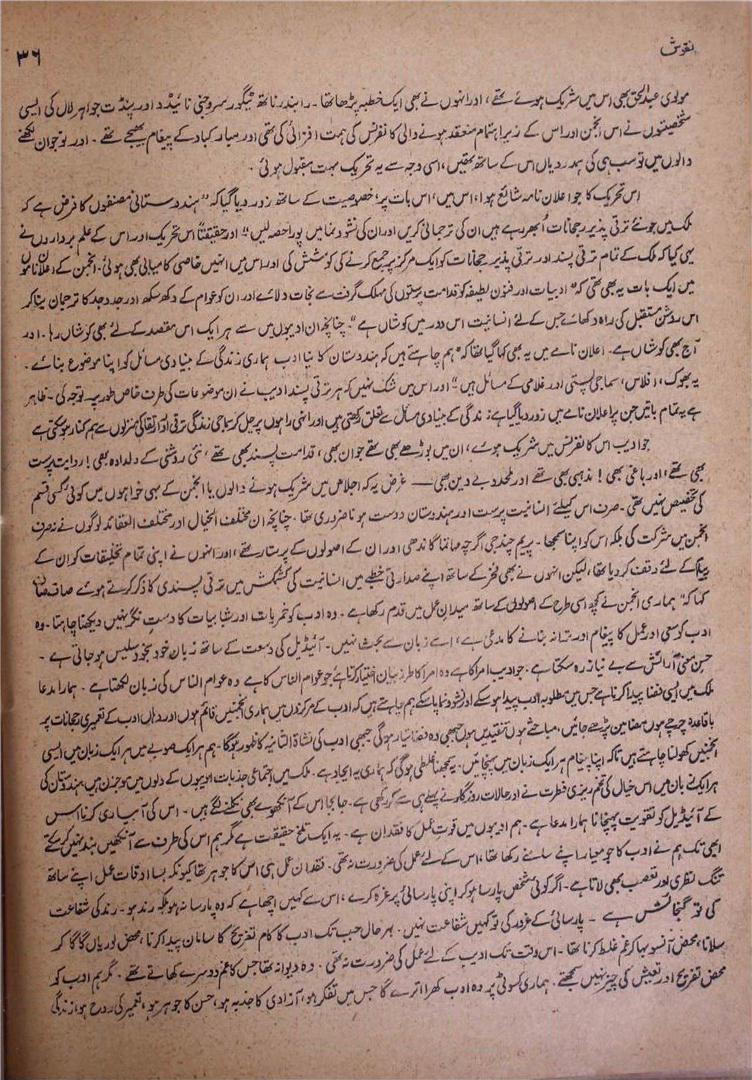 نقوش
۳۶
مولوی عبدالحق بھی اس میں شریک ہوئے تھے، اور انہوں نے بھی ایک خطبہ پڑھا تھا۔ رابندر ناتھ ٹیگور سروجنی نائیڈو اور پنڈت جواہر لال کی ایسی
شخصیتوں نے اس انجمن اور اس کے زیر اہتمام منعقد ہونے والی کانفرنس کی ہمت افزائی کی تھی اور مبارکباد کے پیغام بھیجے تھے۔ اور نوجوان لکھنے
والوں میں تو سب ہی کی ہمدردیاں اس کے ساتھ تھیں، اسی وجہ سے یہ تحریک بہت مقبول ہوئی۔
اس تحریک کا جو اعلان نامہ شائع ہوا، اس میں، اس بات پر، خصوصیت کے ساتھ زور دیا گیا کہ "ہندوستانی مصنفوں کا فرض ہے کہ
ملک میں جو نئے ترقی پذیر رجحانات اُبھر رہے ہیں ان کی ترجمانی کریں اور ان کی نشوونما میں پورا حصہ لیں" اور حقیقتاً اس تحریک اور اس کے علم برداروں نے
یہی کیا کہ ملک کے تمام ترقی پسند اور ترقی پذیر رجحانات کو ایک مرکز پر جمع کرنے کی کوشش کی اور اس میں انہیں خاصی کامیابی بھی ہوئی۔ انجمن کے اعلان ناموں
میں ایک بات یہ بھی تھی کہ "ادبیات اور فنون لطیفہ کو قدامت پرستوں کی مہلک گرفت سے نجات دلائے اور ان کو عوام کے دکھ سکھ اور جدوجہد کا ترجمان بنا کر
اس روشن مستقبل کی راہ دکھائے جس کے لئے انسانیت اس دور میں کوشاں ہے"۔ چنانچہ ان ادیبوں میں سے ہر ایک اس مقصد کے لئے بھی کوشاں رہا۔ اور
آج بھی کوشاں ہے۔ اعلان نامے میں یہ بھی کہا گیا تھا کہ "ہم چاہتے ہیں کہ ہندوستان کا نیا ادب ہماری زندگی کے بنیادی مسائل کو اپنا موضوع بنائے۔
یہ بھوک، افلاس، سماجی پستی اور غلامی کے مسائل ہیں" اور اس میں شک نہیں کہ ہر ترقی پسند ادیب نے ان موضوعات کی طرف خاص طور پر توجہ کی۔ ظاہر
ہے یہ تمام باتیں جن پر اعلان نامے میں زور دیا گیا ہے زندگی کے بنیادی مسائل سے تعلق رکھتی ہیں اور انہی راہوں پر چل کر سماجی زندگی ترقی اور ارتقا کی منزلوں سے ہم کنار ہو سکتی ہے
جو ادیب اس کانفرنس میں شریک ہوئے، ان میں بوڑھے بھی تھے جوان بھی، قدامت پسند بھی تھے، نئی روشنی کے دلدادہ بھی! روایت پرست
بھی تھے، اور باغی بھی! مذہبی بھی تھے اور ملحد و بے دین بھی — غرض یہ کہ اجلاس میں شریک ہونے والوں یا انجمن کے بہی خواہوں میں کوئی کسی قسم
کی تخصیص نہیں تھی۔ صرف اس کیلئے انسانیت پرست اور ہندوستان دوست ہونا ضروری تھا۔ چنانچہ ان مختلف الخیال اور مختلف العقائد لوگوں نے نہ صرف
انجمن میں شرکت کی بلکہ اس کو اپنا سمجھا۔ پریم چند جی اگرچہ مہاتما گاندھی اور ان کے اصولوں کے پرستار تھے، اور انہوں نے اپنی تمام تخلیقات کو ان کے
پیغام کے لئے وقف کر دیا تھا، لیکن انہوں نے بھی فخر کے ساتھ اپنے صدارتی خطبے میں انسانیت کی کشمکش میں ترقی پسندی کا ذکر کرتے ہوئے صاف صاف
کہا کہ "ہماری انجمن نے کچھ اسی طرح کے اصولوں کے ساتھ میدان عمل میں قدم رکھا ہے۔ وہ ادب کو خمریات اور شبابیات کا دست نگر نہیں دیکھنا چاہتا۔ وہ
ادب کو سعی اور عمل کا پیغام اور ترانہ بنانے کا مدعی ہے، اسے زبان سے بحث نہیں۔ آئیڈیل کی وسعت کے ساتھ زبان خود بخود سلیس ہو جاتی ہے۔
حسن معنی آرائش سے بے نیاز رہ سکتا ہے۔ جو ادیب امرا کا ہے وہ امرا کا طرز بیان اختیار کرتا ہے جو عوام الناس کا ہے وہ عوام الناس کی زبان لکھتا ہے۔ ہمارا مدعا
ملک میں ایسی فضا پیدا کرنا ہے جس میں مطلوبہ ادب پیدا ہو سکے اور نشوونما پا سکے ہم چاہتے ہیں کہ ادب کے مرکزوں میں ہماری انجمنیں قائم ہوں اور وہاں ادب کے تعمیری رجحانات پر
باقاعدہ چرچے ہوں مضامین پڑھے جائیں، مباحثے ہوں تنقیدیں ہوں جبھی وہ فضا تیار ہوگی جبھی ادب کی نشاۃ الثانیہ کا ظہور ہوگا۔ ہم ہر ایک صوبے میں ہر ایک زبان میں ایسی
انجمنیں کھولنا چاہتے ہیں تاکہ اپنا پیغام ہر ایک زبان میں پہنچائیں۔ یہ سمجھنا غلطی ہوگی کہ ہماری یہ ایجاد ہے۔ ملک میں اجتماعی جذبات ادیبوں کے دلوں میں موجزن ہیں، ہندوستان کی
ہر ایک زبان میں اس خیال کی تخم ریزی فطرت نے اور حالات روزگار نے پہلے ہی سے کر رکھی ہے۔ جا بجا اس کے آنکھوے بھی نکلنے لگے ہیں۔ اس کی آبیاری کرنا اس
کے آئیڈیل کو تقویت پہنچانا ہمارا مدعا ہے۔ ہم ادیبوں میں قوت عمل کا فقدان ہے۔ یہ ایک تلخ حقیقت ہے مگر ہم اس کی طرف سے آنکھیں بند نہیں کر سکتے
ابھی تک ہم نے ادب کا جو معیار اپنے سامنے رکھا تھا، اس کے لئے عمل کی ضرورت نہ تھی۔ فقدان عمل ہی اس کا جوہر تھا کیونکہ بسا اوقات عمل اپنے ساتھ
تنگ نظری اور تعصب بھی لاتا ہے۔ اگر کوئی شخص پارسا ہو کر اپنی پارسائی پر غرہ کرے، اس سے کہیں اچھا ہے کہ وہ پارسا نہ ہو بلکہ رند ہو۔ رند کی شفاعت
کی تو گنجائش ہے۔ پارسائی کے غرور کی تو کہیں شفاعت نہیں۔ بہرحال جب تک ادب کا کام تفریح کا سامان پیدا کرنا، محض لوریاں گا گا کر
سلانا، محض آنسو بہا کر غم غلط کرنا تھا۔ اس وقت تک ادیب کے لئے عمل کی ضرورت نہ تھی۔ وہ دیوانہ تھا جس کا غم دوسرے کھاتے تھے۔ مگر ہم ادب کو
محض تفریح اور تعیش کی چیز نہیں سمجھتے۔ ہماری کسوٹی پر وہ ادب کھرا اترے گا جس میں تفکر ہو، آزادی کا جذبہ ہو، حسن کا جوہر ہو، تعمیر کی روح ہو، زندگی